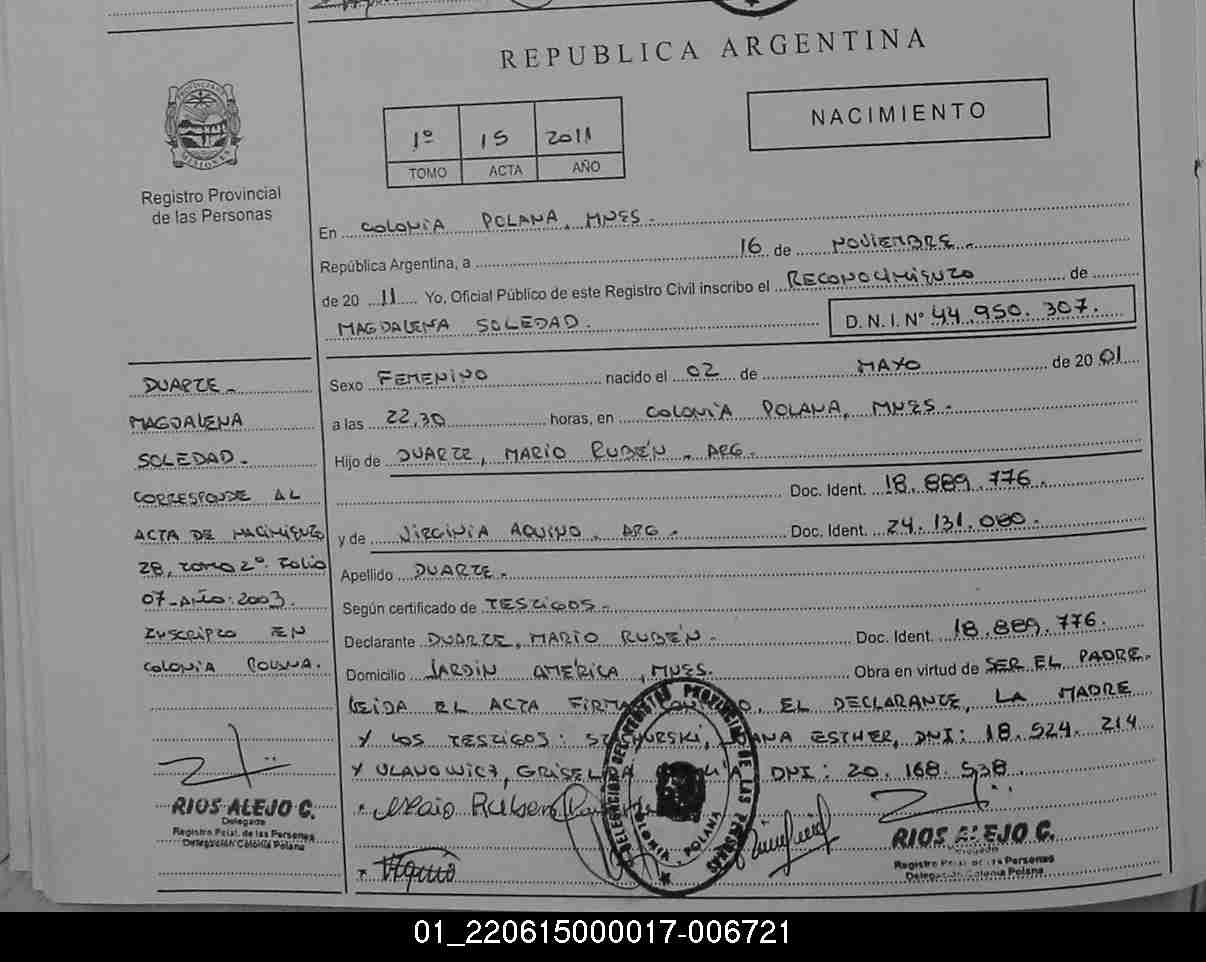 REPUBLICA ARGENTINA
NACIMIENTO
1º 15 2011
TOMO ACTA AÑO
MISIONES
Registro Provincial
de las Personas
En COLONIA POLANA, MNES.
República Argentina, a 16 de NOVIEMBRE.
de 20 11 Yo, Oficial Público de este Registro Civil inscribo el RECONOCIMIENTO de
MAGDALENA SOLEDAD. D. N. I. Nº 44.950.307.
DUARTE.
MAGDALENA
SOLEDAD.
CORRESPONDE AL
ACTA DE NACIMIENTO
28, TOMO 2º. FOLIO
07-AÑO: 2003.
INSCRIPTO EN
COLONIA POLANA.
RIOS ALEJO C.
Delegado
Registro Pcial. de las Personas
Delegación Colonia Polana
Sexo FEMENINO nacido el 02 de MAYO de 20 01
a las 22,30 horas, en COLONIA POLANA, MNES.
Hijo de DUARTE, MARIO RUBÉN, ARG.
Doc. Ident. 18.889.776.
y de VIRGINIA AQUINO, ARG. Doc. Ident. 24.131.080.
Apellido DUARTE.
Según certificado de TESTIGOS.
Declarante DUARTE, MARIO RUBÉN. Doc. Ident. 18.889.776.
Domicilio JARDIN AMÉRICA, MNES. Obra en virtud de SER EL PADRE.
LEIDA EL ACTA FIRMAN EL DECLARANTE, LA MADRE
Y LOS TESTIGOS: ESTHER, DNI: 18.524.214
Y ULANOWICZ, GRISELDA DNI: 20.168.538
Mario Ruben
DELEGACION DEL REGISTRO PROVINCIAL DE LAS PERSONAS
COLONIA POLANA
RIOS ALEJO C.
Delegado
Registro Pcial. de las Personas
Delegación Colonia Polana
01_220615000017-006721